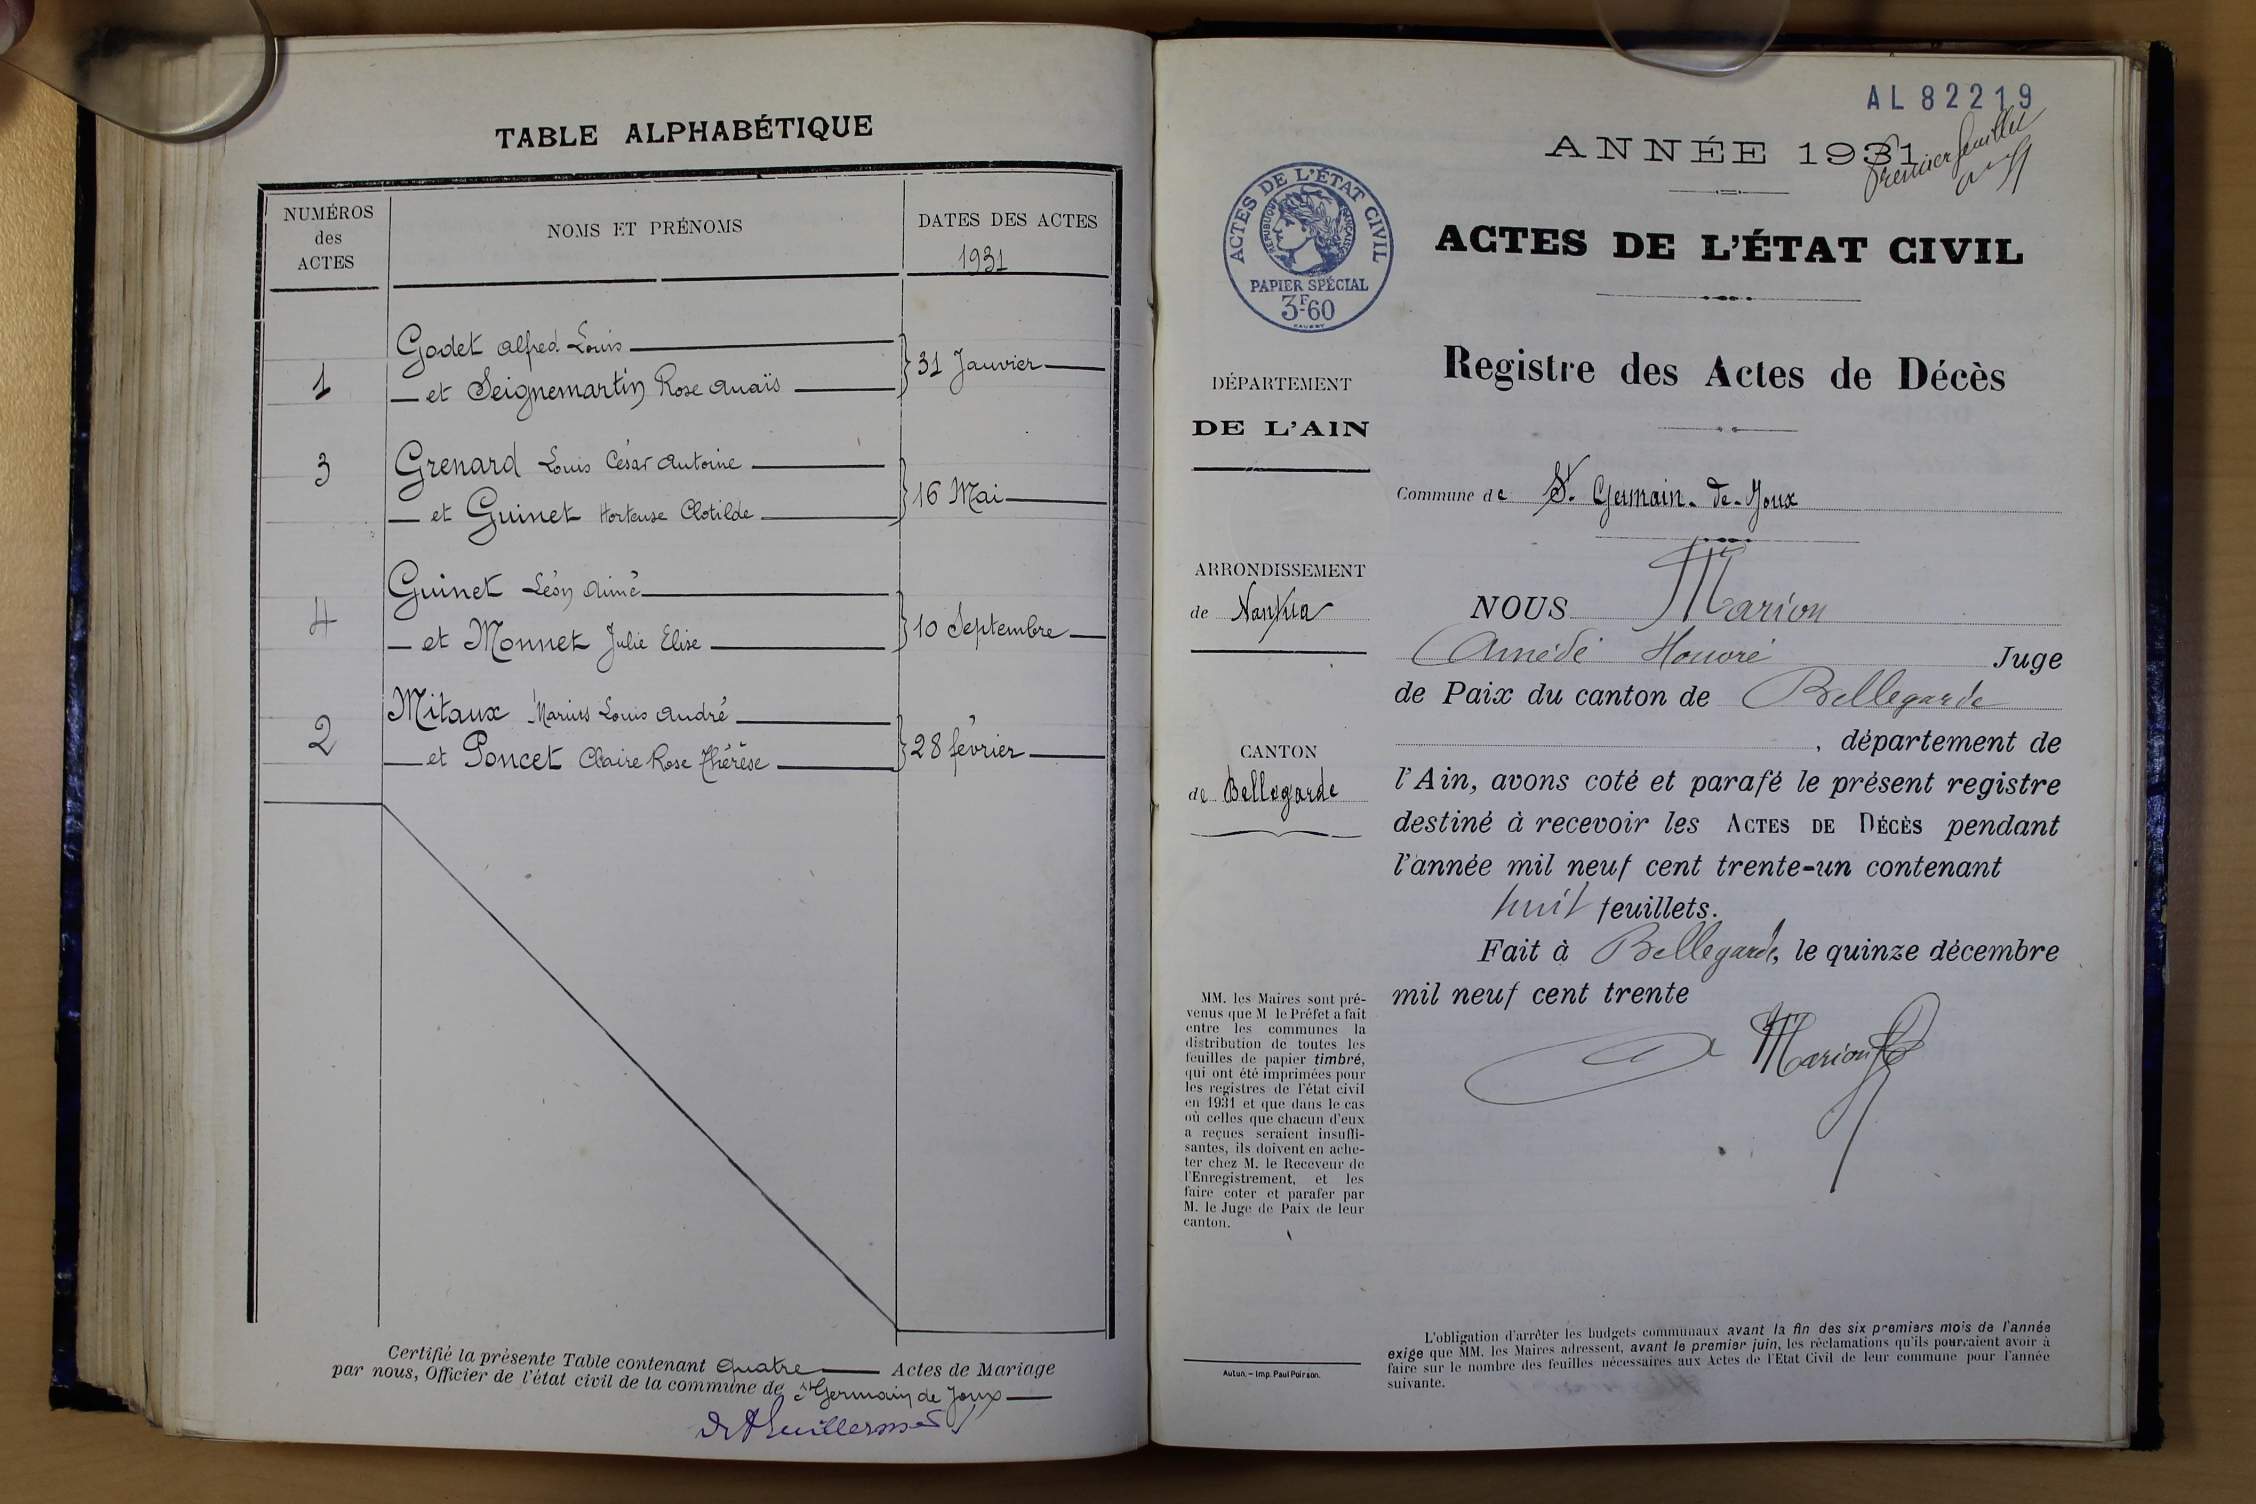 TABLE ALPHABÉTIQUE
NUMÉROS
des
ACTES
NOMS ET PRÉNOMS
DATES DES ACTES
1931
1
Godet Alfred Louis
et Seignemartin Rose Anaïs
31 Janvier
3
Grenard Louis César Antoine
et Guinet Hortense Clotilde
16 Mai
4
Guinet Léon Aimé
et Monnet Julie Elise
10 Septembre
2
Mitaux Marius Louis André
et Poncet Claire Rose Thérèse
28 février
Certifié la présente Table contenant quatre Actes de Mariage
par nous, Officier de l'état civil de la commune de St Germain de Joux
AL 82219
ANNÉE 1931
Premier feuillet
ACTES DE L'ÉTAT CIVIL
RÉPUBLIQUE FRANÇAISE
PAPIER SPÉCIAL
3F60
ACTES DE L'ÉTAT CIVIL
Registre des Actes de Décès
DÉPARTEMENT
DE L'AIN
Commune de St. Germain-de-Joux
ARRONDISSEMENT
de Nantua
CANTON
de Bellegarde
NOUS Marion
Amédé Honoré Juge
de Paix du canton de Bellegarde
, département de
l'Ain, avons coté et parafé le présent registre
destiné à recevoir les ACTES DE DÉCÈS pendant
l'année mil neuf cent trente-un contenant
huit feuillets.
Fait à Bellegarde, le quinze décembre
mil neuf cent trente
Marion
MM. les Maires sont pré-
venus que M le Préfet a fait
entre les communes la
distribution de toutes les
feuilles de papier timbré,
qui ont été imprimées pour
les registres de l'état civil
en 1931 et que dans le cas
où celles que chacun d'eux
a reçues seraient insuffi-
santes, ils doivent en ache-
ter chez M. le Receveur de
l'Enregistrement, et les
faire coter et parafer par
M. le Juge de Paix de leur
canton.
Autun. – Imp. Paul Poirson.
L'obligation d'arrêter les budgets communaux avant la fin des six premiers mois de l'année
exige que MM. les Maires adressent, avant le premier juin, les réclamations qu'ils pourraient avoir à
faire sur le nombre des feuilles nécessaires aux Actes de l'Etat Civil de leur commune pour l'année
suivante.